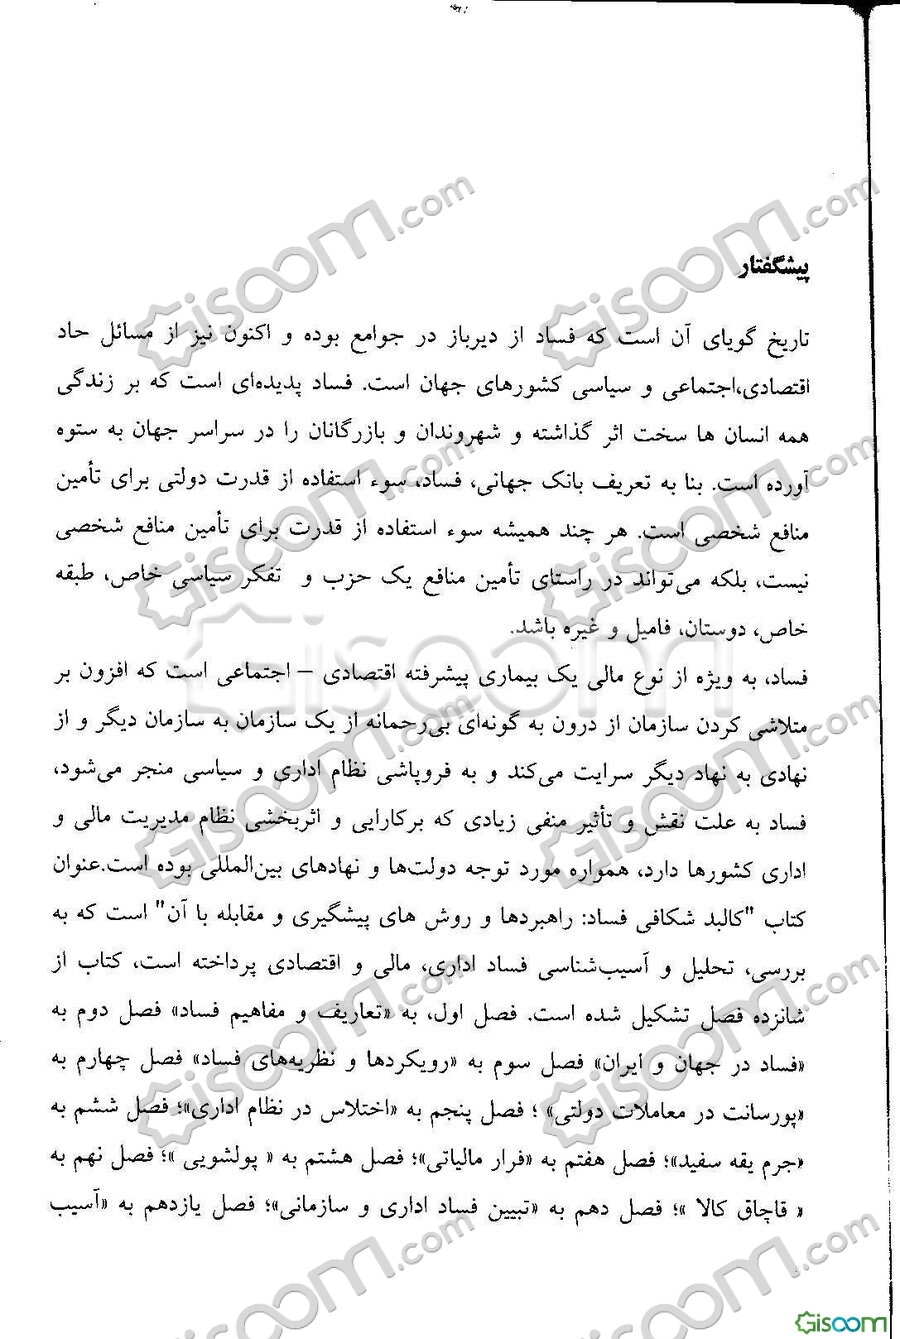 پیشگفتار
تاریخ گویای آن است که فساد از دیرباز در جوامع بوده و اکنون نیز از مسائل حاد
اقتصادی،اجتماعی و سیاسی کشورهای جهان است. فساد پدیده‌ای است که بر زندگی
همه انسان ها سخت اثر گذاشته و شهروندان و بازرگانان را در سراسر جهان به ستوه
آورده است. بنا به تعریف بانک جهانی، فساد، سوء استفاده از قدرت دولتی برای تأمین
منافع شخصی است. هر چند همیشه سوء استفاده از قدرت برای تأمین منافع شخصی
نیست، بلکه می‌تواند در راستای تأمین منافع یک حزب و تفکر سیاسی خاص، طبقه
خاص، دوستان، فامیل و غیره باشد.
فساد، به ویژه از نوع مالی یک بیماری پیشرفته اقتصادی – اجتماعی است که افزون بر
متلاشی کردن سازمان از درون به گونه‌ای بی‌رحمانه از یک سازمان به سازمان دیگر و از
نهادی به نهاد دیگر سرایت می‌کند و به فروپاشی نظام اداری و سیاسی منجر می‌شود،
فساد به علت نقش و تأثیر منفی زیادی که برکارایی و اثربخشی نظام مدیریت مالی و
اداری کشورها دارد، همواره مورد توجه دولت‌ها و نهادهای بین‌المللی بوده است.عنوان
کتاب "کالبد شکافی فساد: راهبردها و روش های پیشگیری و مقابله با آن" است که به
بررسی، تحلیل و آسیب‌شناسی فساد اداری، مالی و اقتصادی پرداخته است، کتاب از
شانزده فصل تشکیل شده است. فصل اول، به «تعاریف و مفاهیم فساد» فصل دوم به
«فساد در جهان و ایران» فصل سوم به «رویکردها و نظریه‌های فساد» فصل چهارم به
«پورسانت در معاملات دولتی» ؛ فصل پنجم به «اختلاس در نظام اداری»؛ فصل ششم به
«جرم یقه سفید»؛ فصل هفتم به «فرار مالیاتی»؛ فصل هشتم به « پولشویی »؛ فصل نهم به
« قاچاق کالا »؛ فصل دهم به «تبیین فساد اداری و سازمانی»؛ فصل یازدهم به «آسیب
Gisoom.com
Gisoom